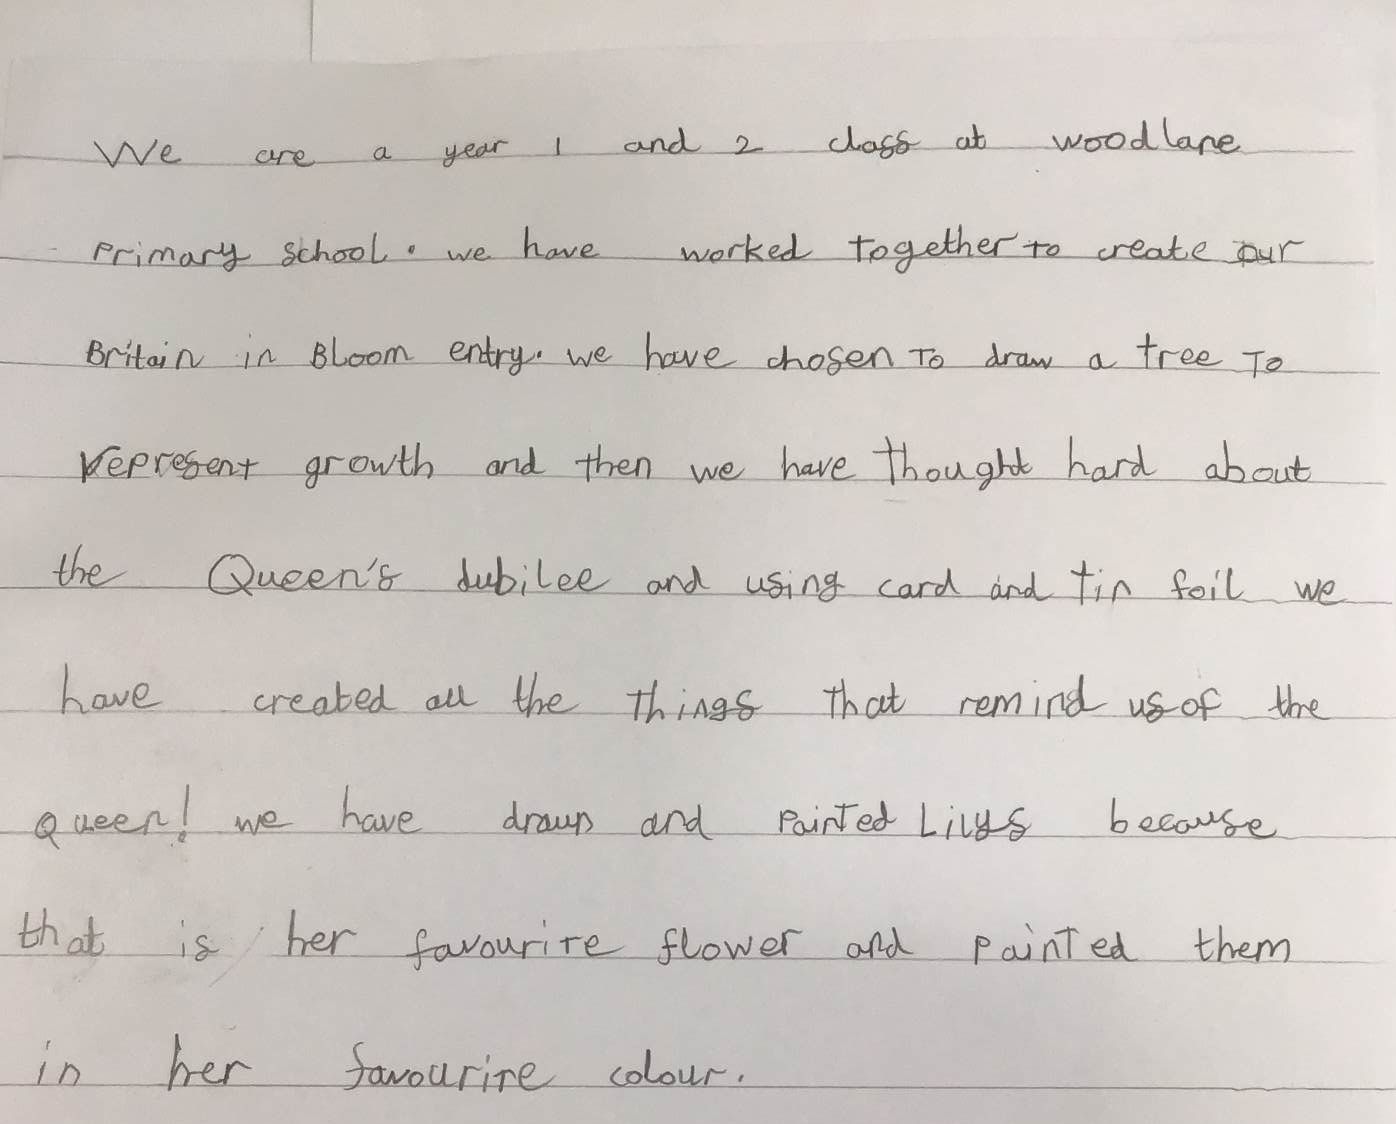 We are a year 1 and 2 class at woodlane
Primary School. we have worked together to create our
Britain in Bloom entry. we have chosen To draw a tree To
represent growth and then we have thought hard about
the Queen's dubilee and using card and tin foil we
have created all the things that remind us of the
Queen! we have drawn and painted Lilys because
that is her favourite flower and painted them
in her favourite colour.